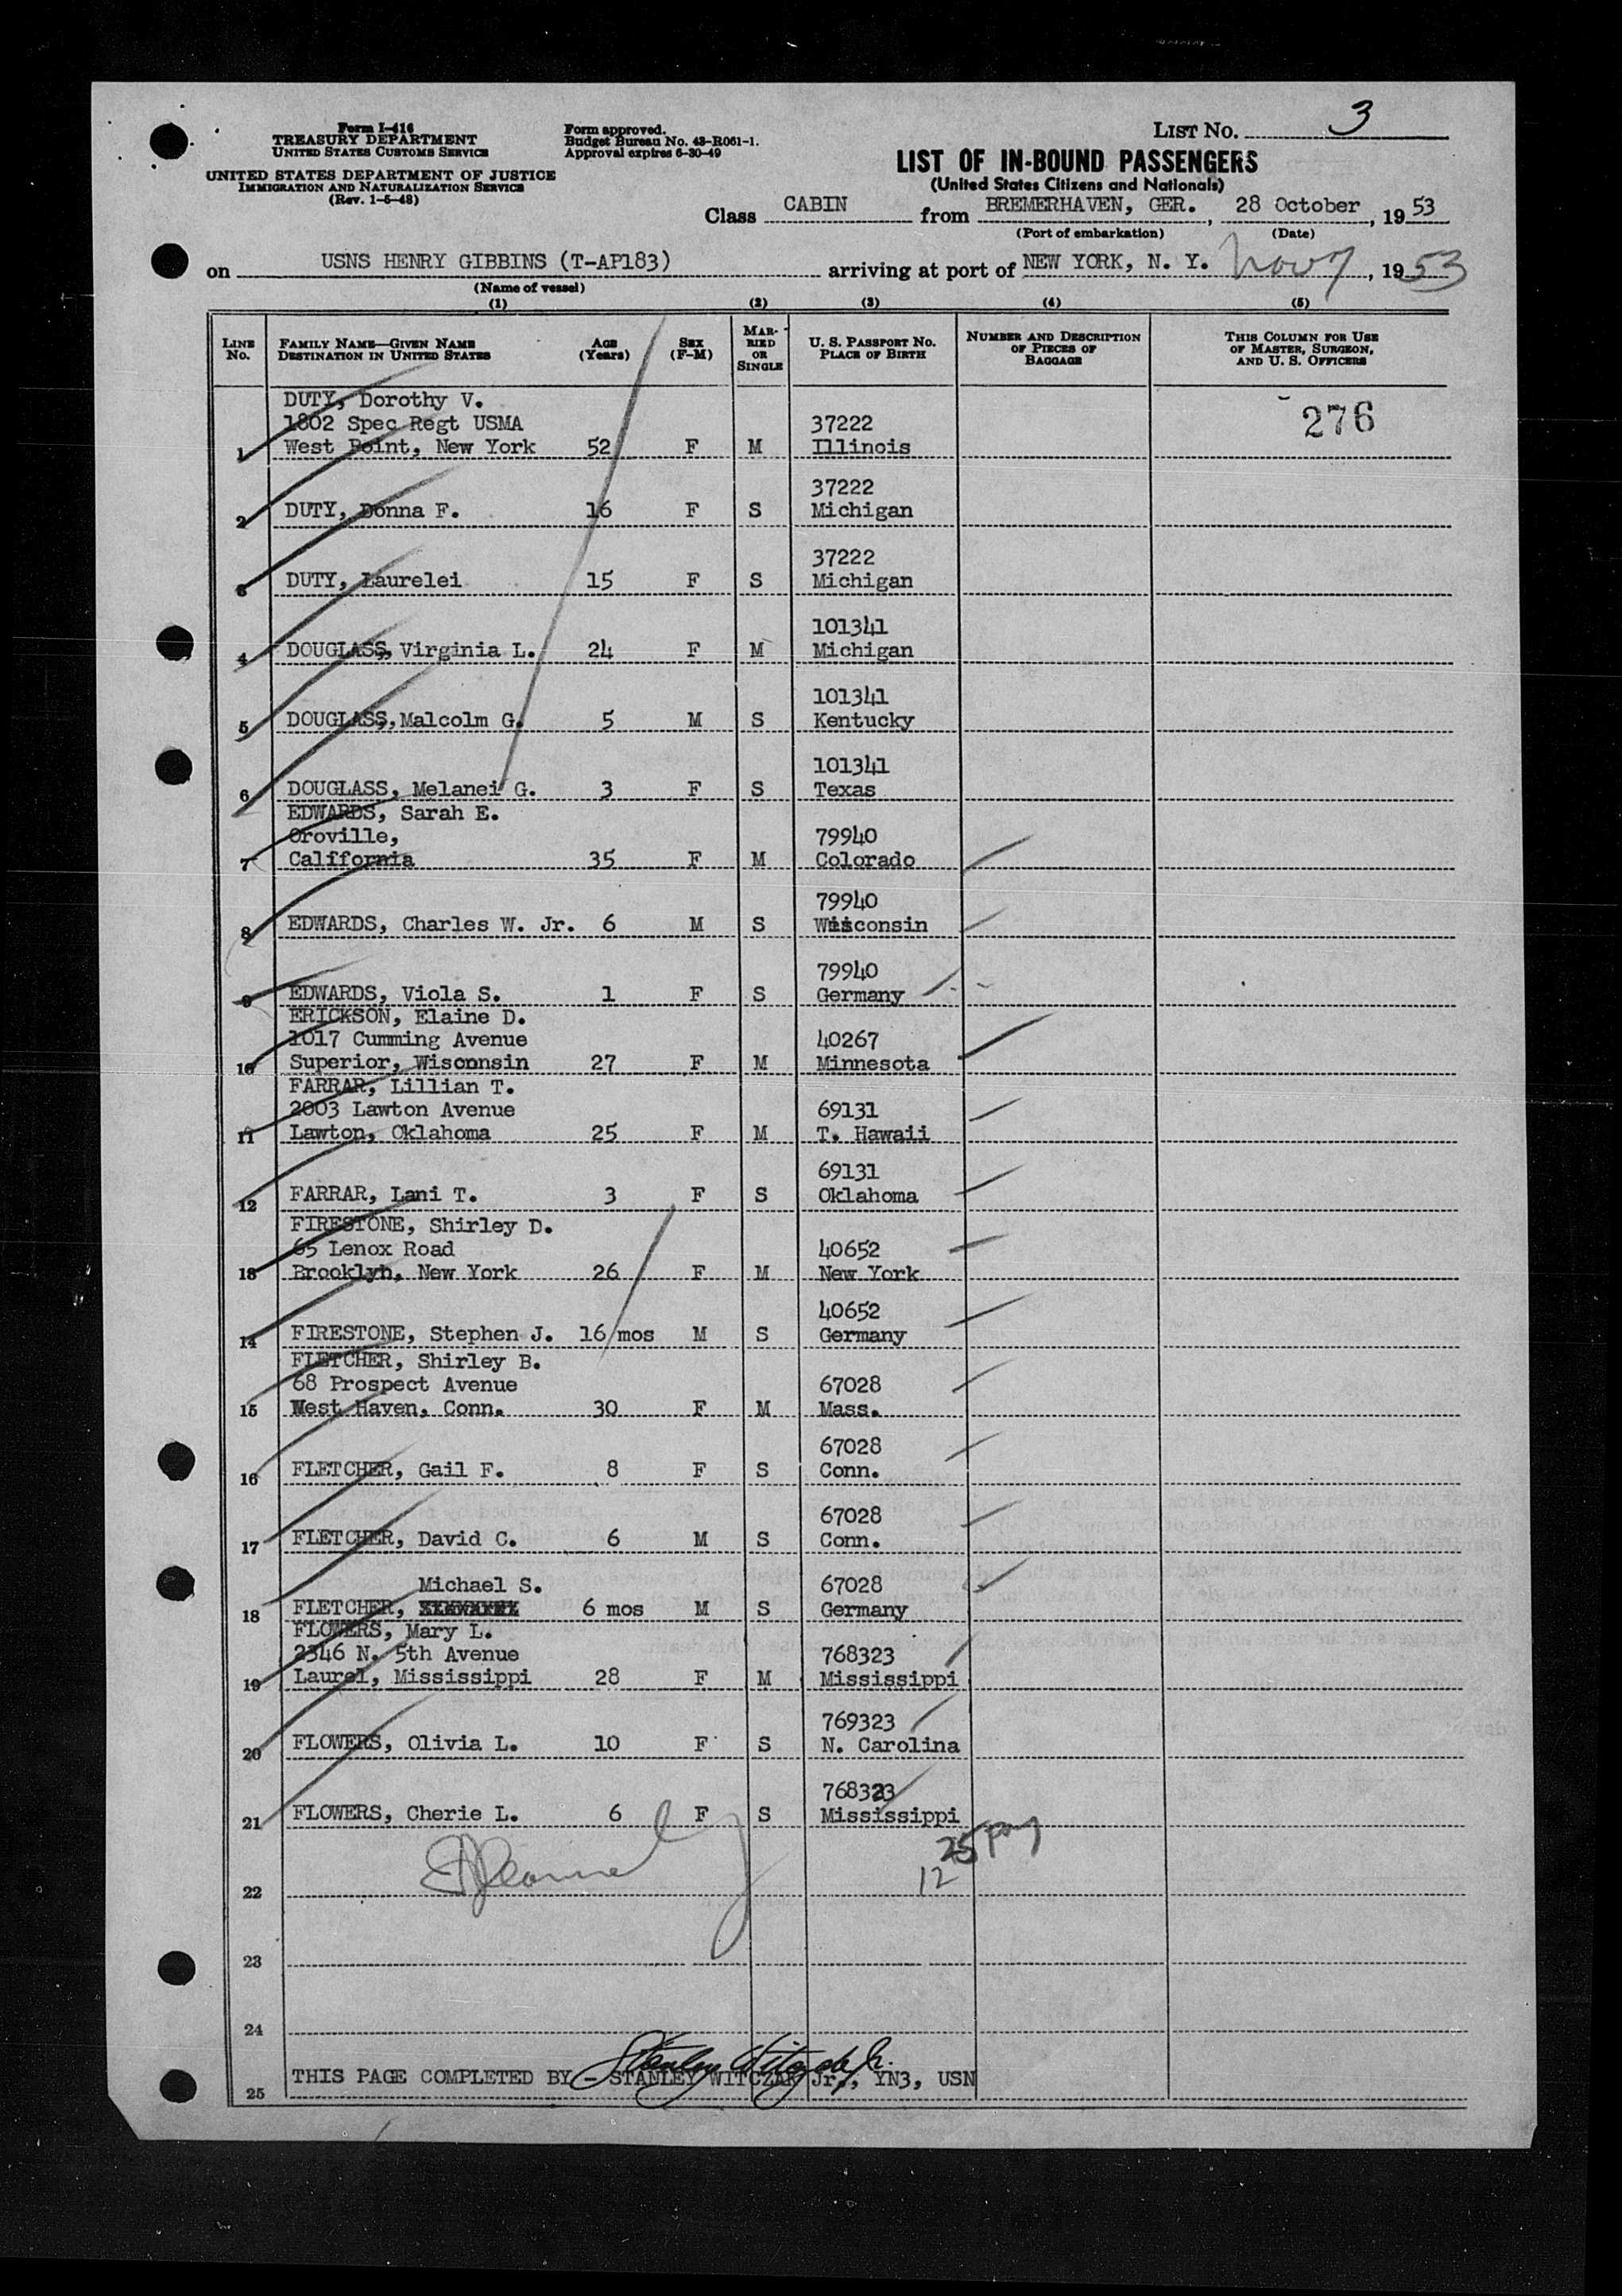 Form I-416
TREASURY DEPARTMENT
UNITED STATES CUSTOMS SERVICE
UNITED STATES DEPARTMENT OF JUSTICE
IMMIGRATION AND NATURALIZATION SERVICE
(Rev. 1-5-48)
Form approved.
Budget Bureau No. 43-R061-1.
Approval expires 6-30-49
LIST No. 3
LIST OF IN-BOUND PASSENGERS
(United States Citizens and Nationals)
Class CABIN from BREMERHAVEN, GER., 28 October, 1953
(Port of embarkation) (Date)
on USNS HENRY GIBBINS (T-AP183) arriving at port of NEW YORK, N. Y. Nov 7, 1953
(Name of vessel)
(1) (2) (3) (4) (5)
LINE No. FAMILY NAME—GIVEN NAME DESTINATION IN UNITED STATES AGE (Years) SEX (F-M) MARRIED OR SINGLE U. S. PASSPORT No. PLACE OF BIRTH NUMBER AND DESCRIPTION OF PIECES OF BAGGAGE THIS COLUMN FOR USE OF MASTER, SURGEON, AND U. S. OFFICERS
DUTY, Dorothy V.
1802 Spec Regt USMA 37222 276
1 West Point, New York 52 F M Illinois
37222
2 DUTY, Donna F. 16 F S Michigan
37222
3 DUTY, Laurelei 15 F S Michigan
101341
4 DOUGLASS, Virginia L. 24 F M Michigan
101341
5 DOUGLASS, Malcolm G. 5 M S Kentucky
101341
6 DOUGLASS, Melanei G. 3 F S Texas
EDWARDS, Sarah E.
Oroville, 79940
7 California 35 F M Colorado
79940
8 EDWARDS, Charles W. Jr. 6 M S Wisconsin
79940
9 EDWARDS, Viola S. 1 F S Germany
ERICKSON, Elaine D.
1017 Cumming Avenue 40267
10 Superior, Wisconnsin 27 F M Minnesota
FARRAR, Lillian T.
2003 Lawton Avenue 69131
11 Lawton, Oklahoma 25 F M T. Hawaii
69131
12 FARRAR, Lani T. 3 F S Oklahoma
FIRESTONE, Shirley D.
65 Lenox Road 40652
13 Brooklyn, New York 26 F M New York
40652
14 FIRESTONE, Stephen J. 16 mos M S Germany
FLETCHER, Shirley B.
68 Prospect Avenue 67028
15 West Haven, Conn. 30 F M Mass.
67028
16 FLETCHER, Gail F. 8 F S Conn.
67028
17 FLETCHER, David C. 6 M S Conn.
Michael S. 67028
18 FLETCHER, 6 mos M S Germany
FLOWERS, Mary L.
2346 N. 5th Avenue 768323
19 Laurel, Mississippi 28 F M Mississippi
769323
20 FLOWERS, Olivia L. 10 F S N. Carolina
768323
21 FLOWERS, Cherie L. 6 F S Mississippi
25
12
22
23
24
25 THIS PAGE COMPLETED BY - STANLEY WITCZAK Jr., YN3, USN